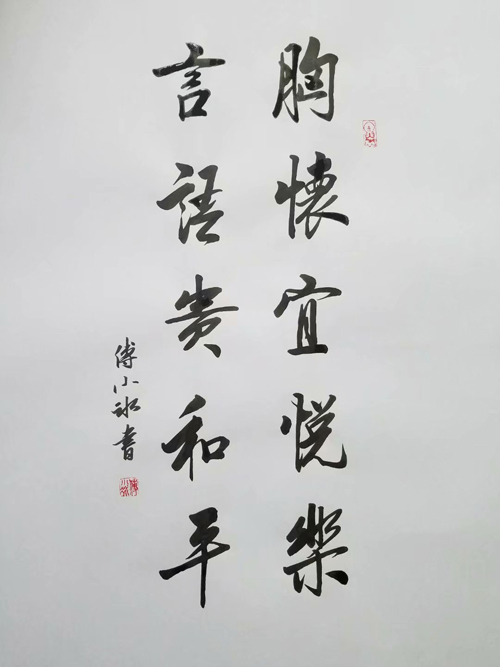 胸懷宜悦樂
言語貴和平
傅小冰書